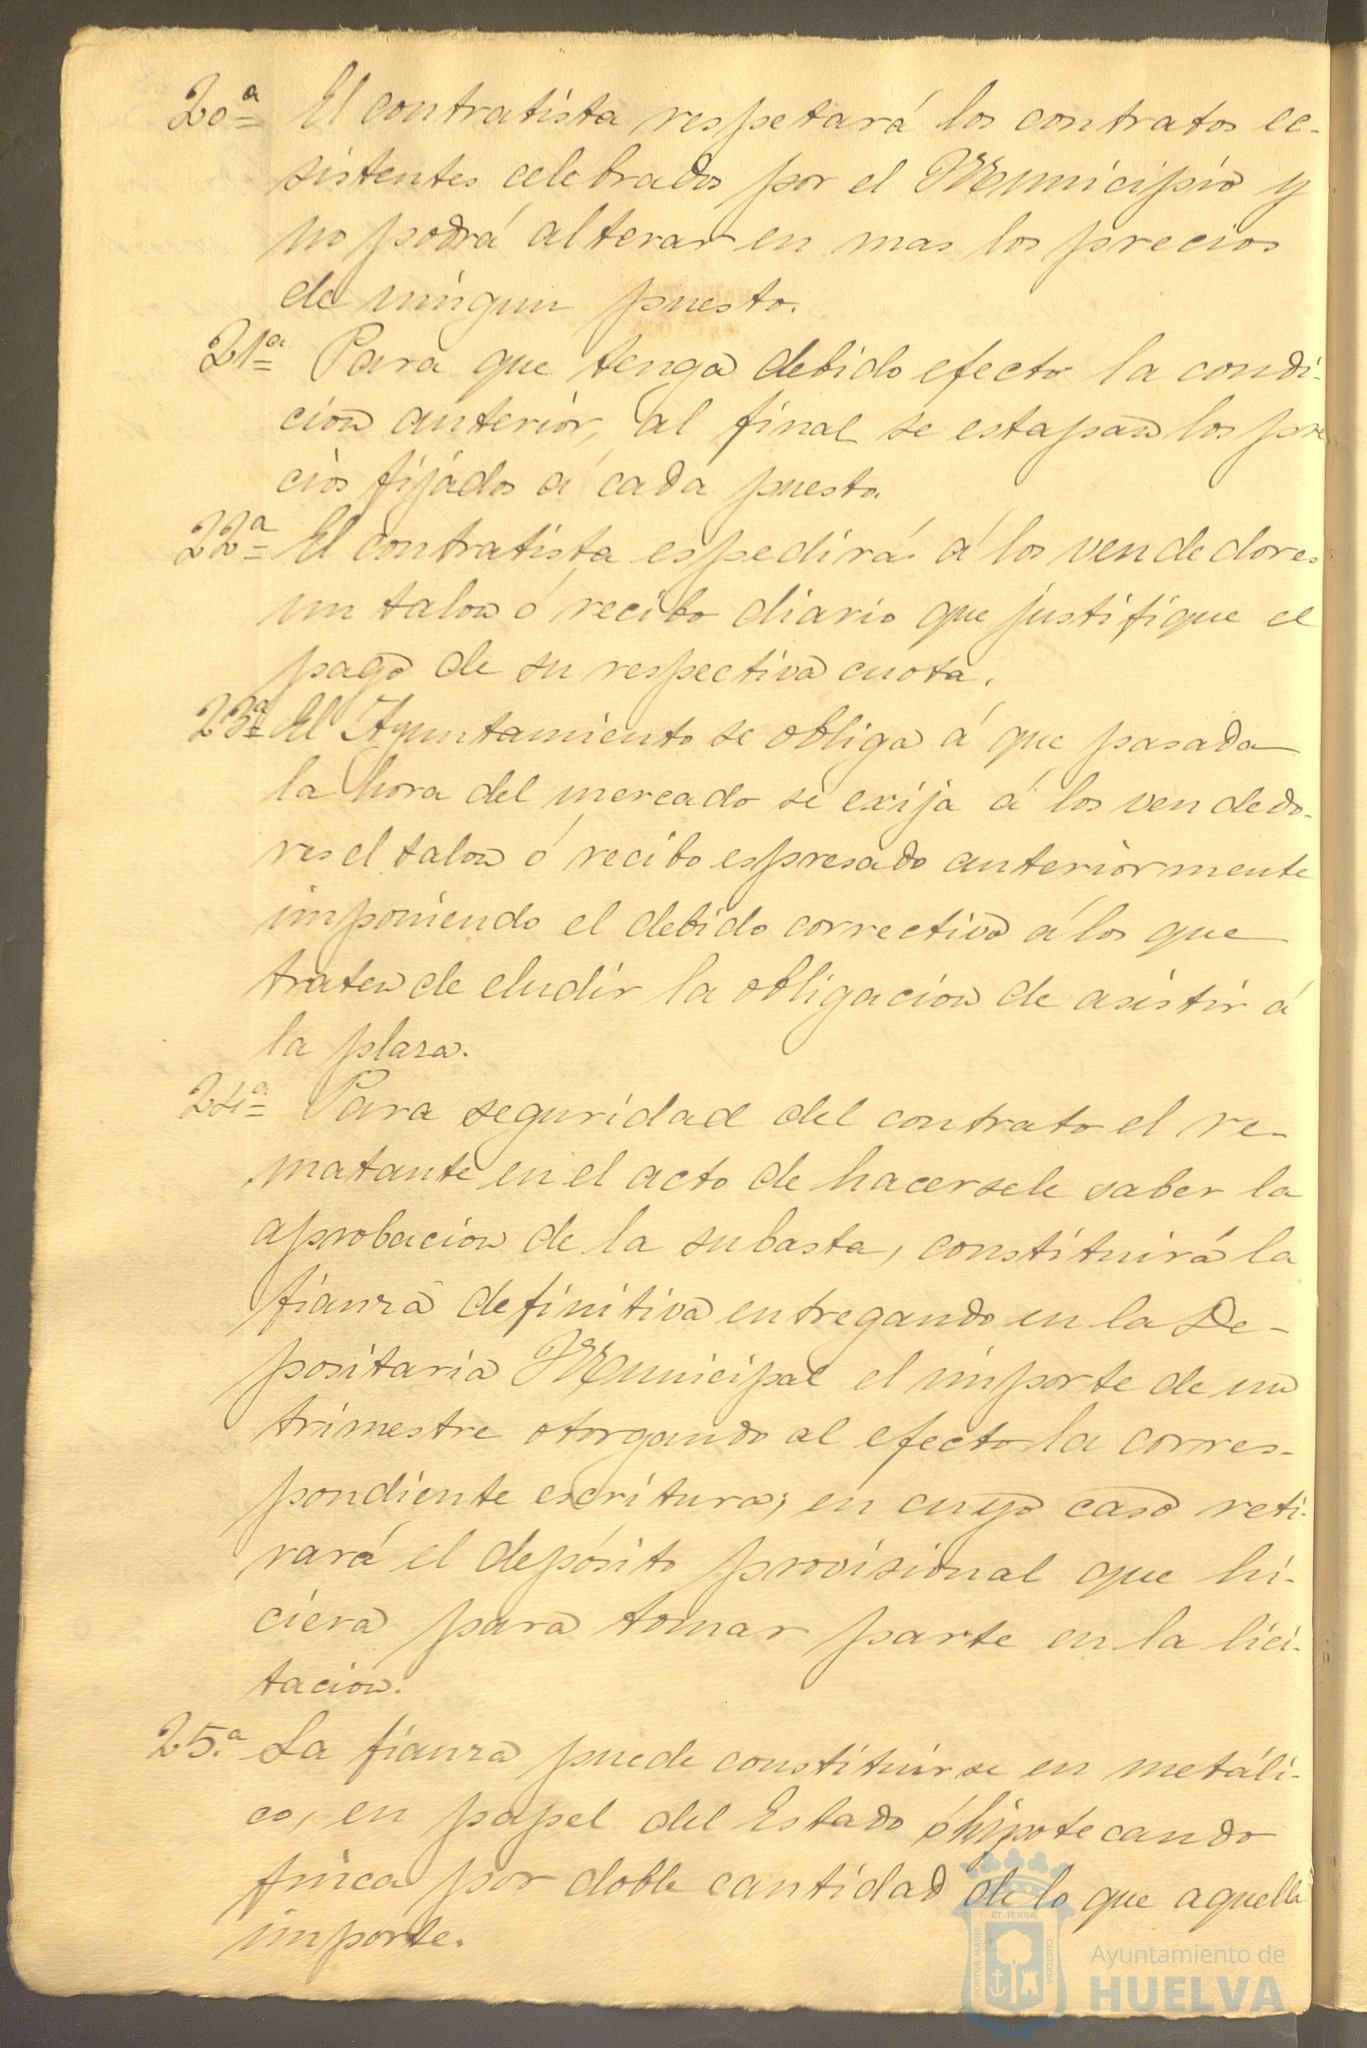 20ª El contratista respetará los contratos ec-
sistentes celebrados por el Municipio y
no podrá alterar en mas los precios
de ningun puesto.
21ª Para que tenga debido efecto la condi-
cion anterior, al final se estapan los pre
cios fijados á cada puesto.
22ª El contratista espedirá á los vendedores
un talon ó recibo diario que justifique el
pago de su respectiva cuota.
23ª El Ayuntamiento se obliga á que pasada
la hora del mercado se exija á los vendedo-
res el talon ó recibo espresado anteriormente
imponiendo el debido correctivo á los que
traten de eludir la obligacion de asistir á
la plaza.
24ª Para seguridad del contrato el re-
matante en el acto de hacersele saber la
aprobacion de la subasta, constituirá la
fianza definitiva entregando en la De-
positaria Municipal el importe de un
trimestre otorgando al efecto la corres-
pondiente escritura; en cuyo caso reti-
rará el depósito provisional que hi-
ciera para tomar parte en la lici-
tacion.
25.ª La fianza puede constituirse en metáli-
co, en papel del Estado ó hipotecando
finca por doble cantidad de lo que aquella
importe.
PORTUS MARIS ET TERRÆ CUSTODIA
Ayuntamiento de
HUELVA